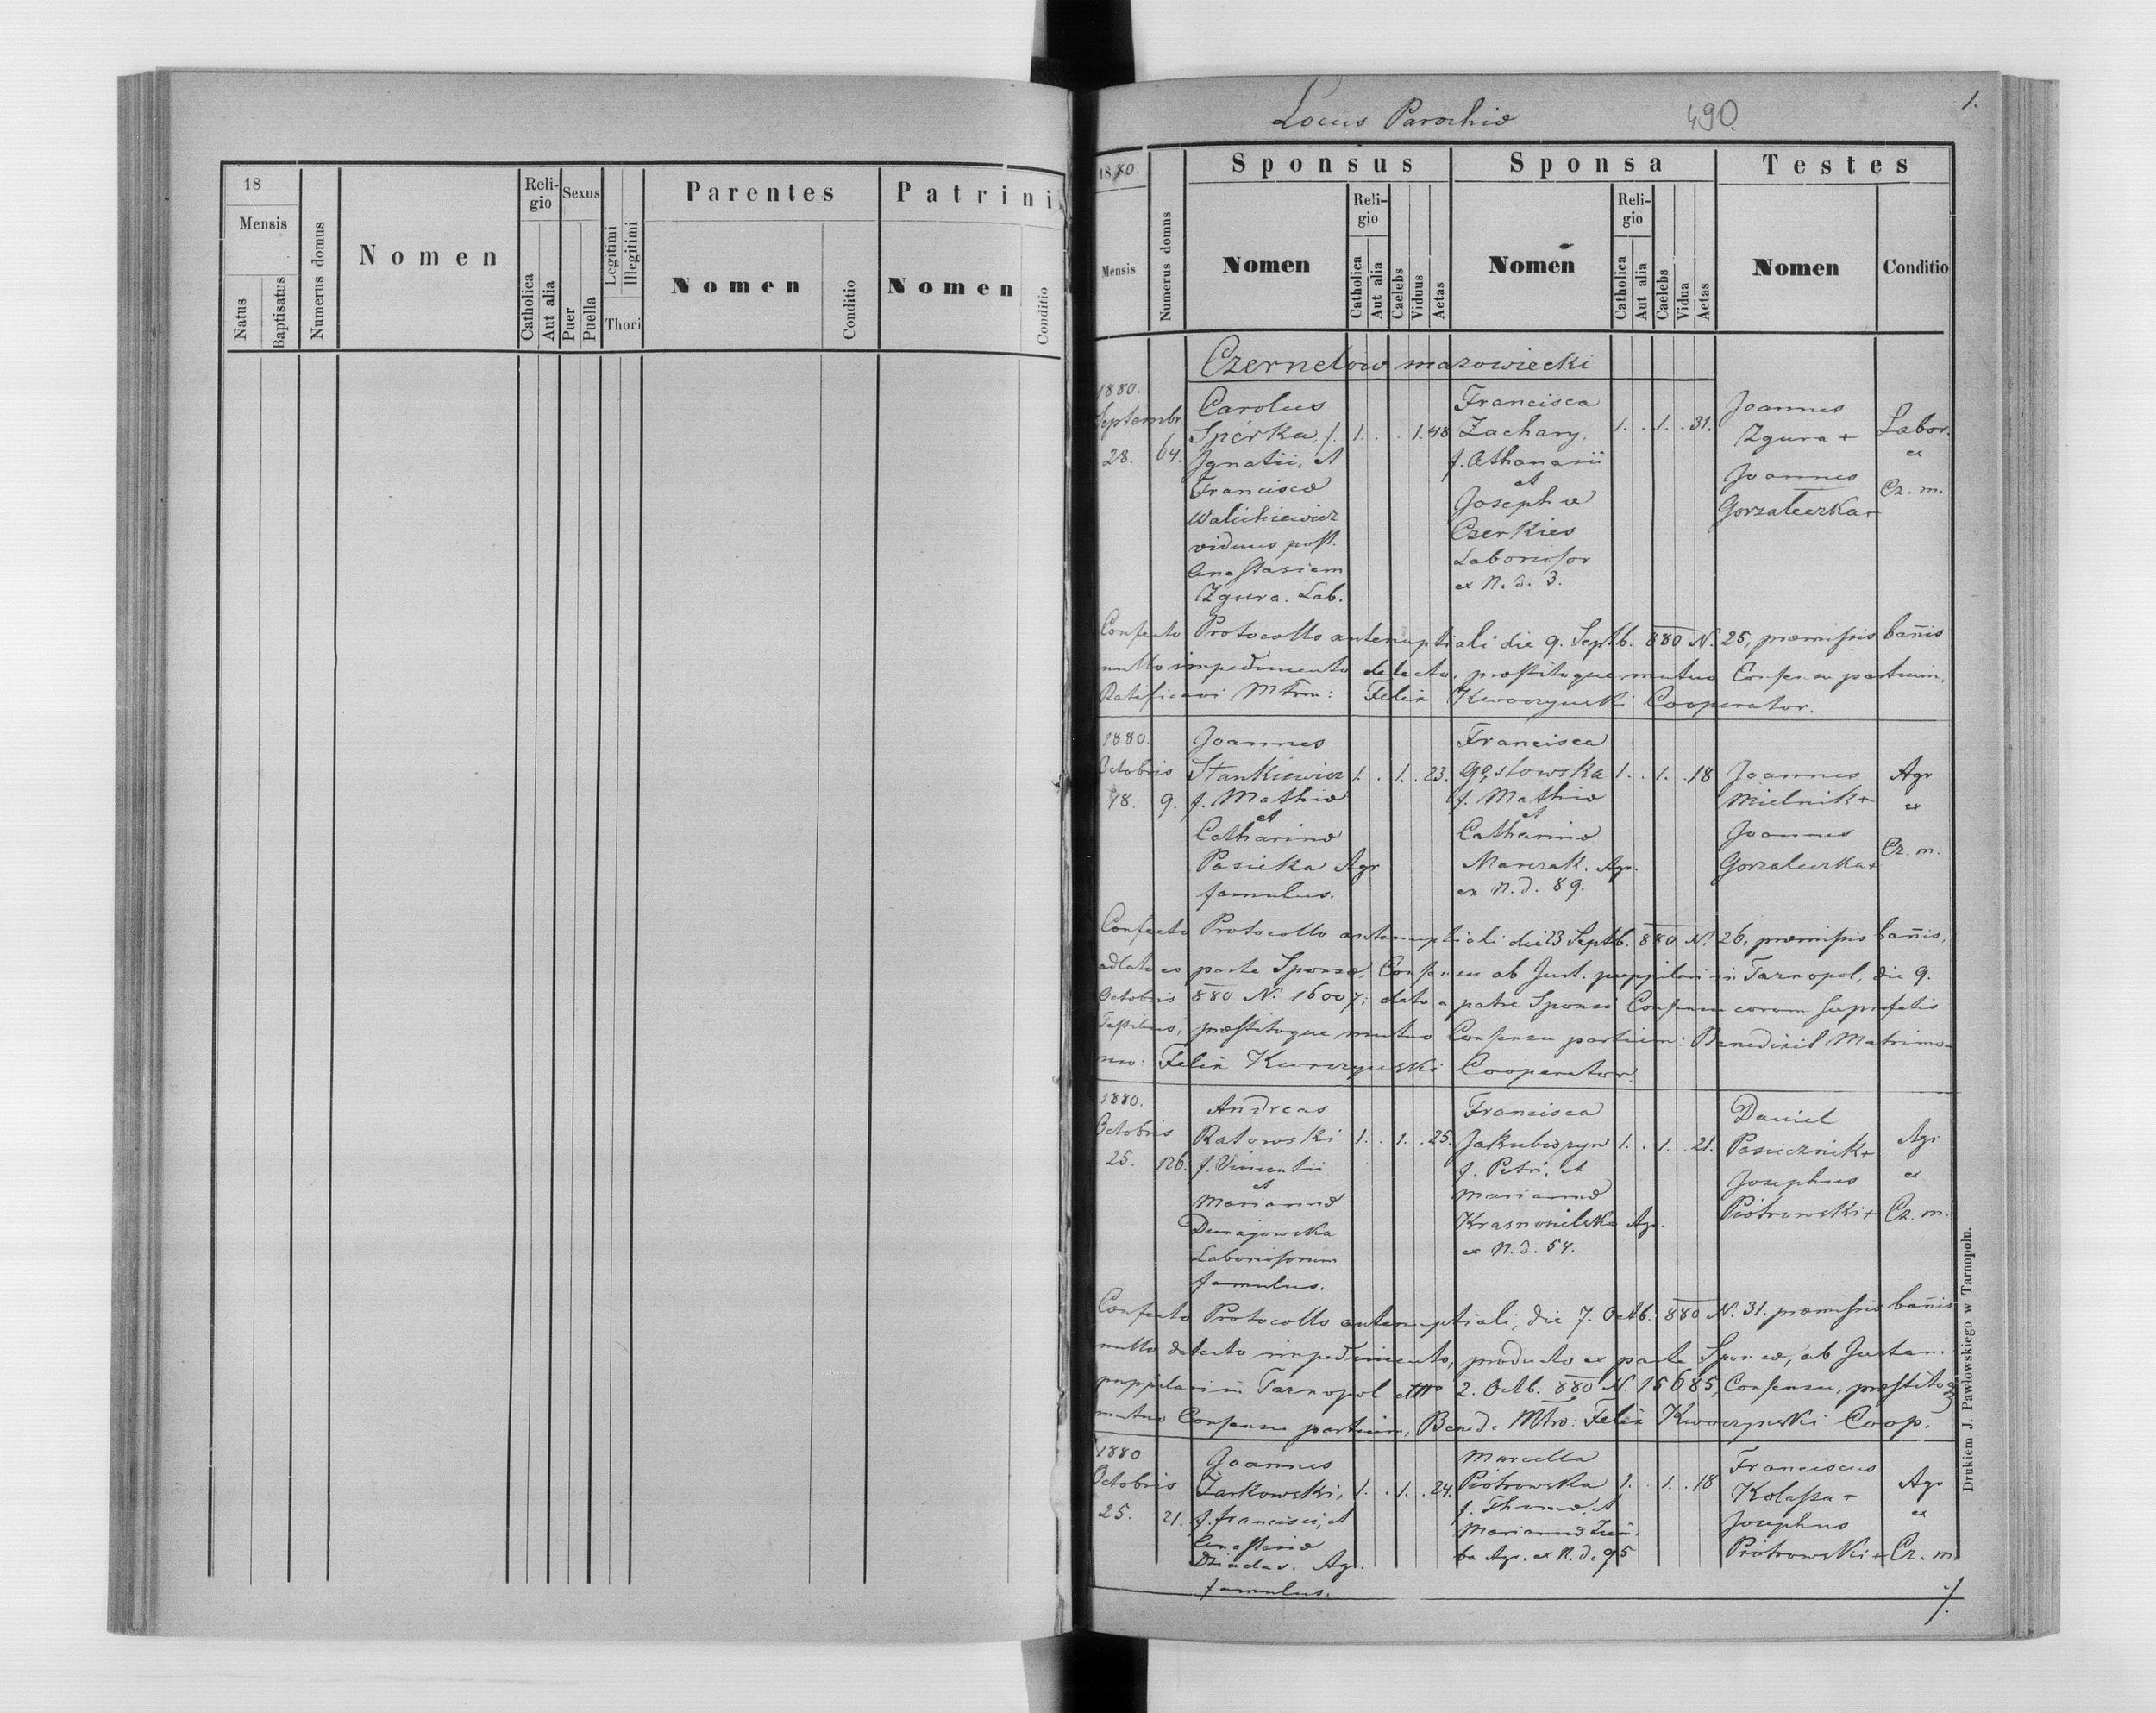 18
Mensis
Natus
Baptisatus
Numerus domus
Nomen
Religio
Catholica
Aut alia
Sexus
Puer
Puella
Legitimi
Illegitimi
Thori
Parentes
Nomen
Conditio
Patrini
Nomen
Conditio
Locus Parochiæ
490.
1.
1880.
Mensis
Numerus domus
Sponsus
Nomen
Religio
Catholica
Aut alia
Caelebs
Viduus
Aetas
Sponsa
Nomen
Religio
Catholica
Aut alia
Caelebs
Vidua
Aetas
Testes
Nomen
Conditio
Czernelow mazowiecki
1880.
Septembr
28. 64.
Carolus
Spérka, f. 1. . . 1. 48
Ignatii, et
Franciscæ
Walichiewicz
viduus post.
Anastasiam
Zgura. Lab.
Francisca
Zachary, 1. . 1. . 31.
f. Athanasii
et
Josephæ
Czerkies
Laboriosor
ex N. d. 3.
Joannes
Zgura +
Joannes
Gorzaleczka +
Labor.
ex
Cz. m.
Confecto Protocollo antenuptiali die 9. Septb. 880 N. 25, præmissis bañis
nullo impedimento detecto, præstitoque mutuo Consensu partium,
Ratificavi Mtrm: Felix Kworzynski Cooperator.
1880.
Octobris
18. 9.
Joannes
Stankiewicz 1. . 1. . 23.
f. Mathiæ
et
Catharinæ
Pasieka Agr
famulus.
Francisca
Gęstowska 1. . 1. . 18
f. Mathiæ
et
Catharinæ
Marczak. Agr.
ex N. d. 89.
Joannes
Mielnik +
Joannes
Gorzaleczka +
Agr
ex
Cz. m.
Confecto Protocollo antenuptiali die 23 Septb. 880 N. 26, præmissis bañis,
adlato ex parte Sponsæ, Consensu ab Just. puppilari in Tarnopol, die 9.
Octobris 880 N. 16007; dato a patre Sponsi Consensu coram suprafatis
Testibus, præstitoque mutuo Consensu partium: Benedixit Matrimo-
nio: Felix Kworzynski Cooperator.
1880.
Octobris
25. 126.
Andreas
Ratowski 1. . 1. . 25.
f. Vincentii
et
Mariannæ
Dunajowska
Laboriosorum
famulus.
Francisca
Jakubiszyn 1. . 1. . 21.
f. Petri, et
Mariannæ
Krasnosielska Agr.
ex N. d. 54.
Daniel
Pasiecznik +
Josephus
Piotrowski +
Agr
ex
Cz. m.
Confecto Protocollo antenuptiali, die 7. Octb. 880 N. 31. præmissis bañis
nullo detecto impedimento, producto ex parte Sponsæ, ab Justan.
puppilari in Tarnopol 2. Octb. 880 N. 15685, Consensu, præstitoq
mutuo Consensu partium, Bened. Mtro: Felix Kworzynski Coop.
1880
Octobris
25. 21.
Joannes
Żarkowski, 1. . 1. . 24.
f. Francisci, et
Anastasiæ
Dziadas. Agr.
famulus.
Marcella
Piotrowska 1. . 1. . 18
f. Thomæ, et
Mariannæ
ba Agr. ex N. d. 95
Franciscus
Kolassa +
Josephus
Piotrowski +
Agr
ex
Cz. m.
Drukiem J. Pawłowskiego w Tarnopolu.